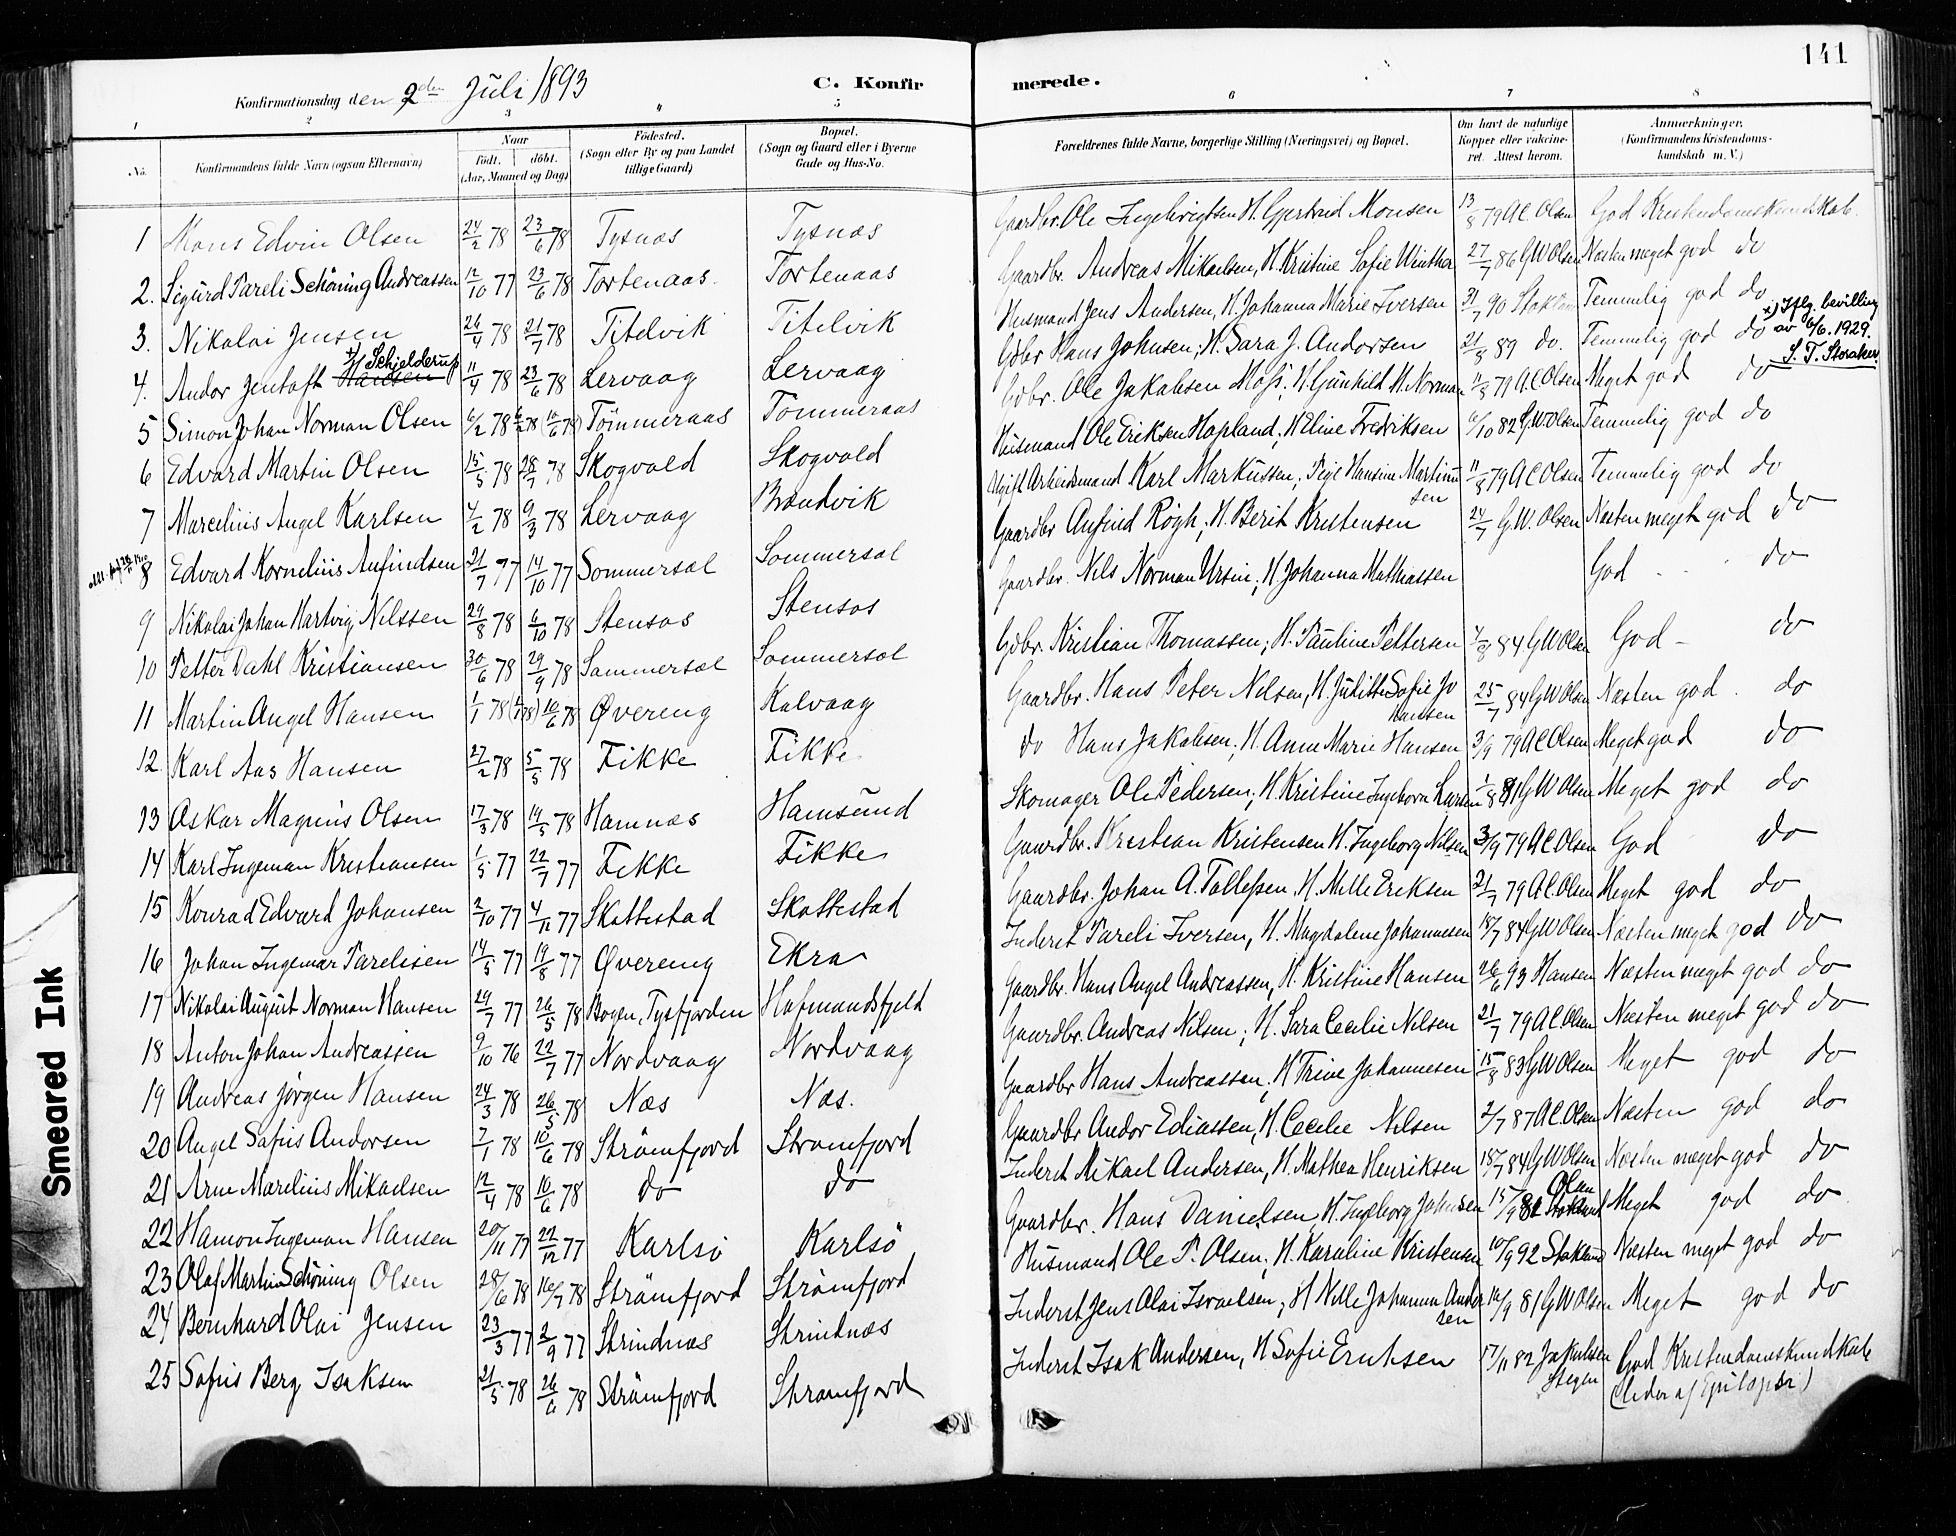 141
Konfirmationsdag den 2den Juli 1893
C. Konfirmerede.
1 2 3 4 5 6 7 8
No. Konfirmandens fulde Navn (ogsaa Efternavn) Naar født. døbt. (Aar, Maaned og Dag) Fødested. (Sogn eller By og paa Landet tillige Gaard) Bopæl. (Sogn og Gaard eller i Byerne Gade og Hus-No. Forældrenes fulde Navne, borgerlige Stilling (Næringsvei) og Bopæl. Om havt de naturlige Kopper eller vakcineret. Attest herom. Anmærkninger. (Konfirmandens Kristendomskundskab m. V.)
1 Hans Edvin Olsen 24/2 78 23/6 78 Tysnæs Tysnæs Gaardbr. Ole Ingebrigtsen H. Gjertrud Monsen 13/8 79 A C Olsen God Kristendomskundskab.
2. Sigurd Pareli Schöning Andreassen 12/10 77 23/6 78 Tortenaas. Tortenaas Gaardbr. Andreas Mikaelsen, H. Kristine Sofie Winther 27/7 86 G W Olsen Næsten meget god do
3. Nikolai Jensen 26/4 78 21/7 78 Titelvik Titelvik Husmand Jens Andersen, H. Johanna Marie Iversen 31/7 90 Temmelig god do
4. Andor Jentoft Hansen x) Schjelderup 11/4 78 23/6 78 Lervaag Lervaag Gdbr Hans Johnsen; H. Sara J. Andorsen 21/8 89 do. Temmelig god do x) Iflg. bevilling av 6/6. 1929. S. T. Storaker
5 Simon Johan Norman Olsen 6/2 78 6/2 78 (10/6 78) Tömmeraas Tömmeraas Gdbr. Ole Jakobsen Moss; H. Gunhild M. Norman 11/8 79 A C Olsen Meget god do
6 Edvard Martin Olsen 15/5 78 28/7 78 Skogvold Skogvold Husmand Ole Eriksen Hopland; H. Eline Fredriksen 6/10 82 G. W. Olsen Temmelig god do
7 Marcelius Angel Karlsen 4/2 78 9/3 78 Lervaag Brændvik Ugift Arbeidsmand Karl Markussen; Pige Hansine Martinussen 11/8 79 A C Olsen Temmelig god do
8 Edvard Kornelius Anfindsen 21/7 77 14/10 77 Sommersæl Sommersæl Gaardbr Anfind Røgh, H. Berit Kristensen 24/7 G. W. Olsen Næsten meget god do
9 Nikolai Johan Hartvig Nilssen 29/8 78 6/10 78 Stensøs Stensøs Gaardbr. Nils Norman Ursin; H. Johanna Mathiassen God do
10 Petter Dahl Kristiansen 30/6 78 29/9 78 Sommersæl Sommersæl Gdbr. Kristian Thomassen; H. Pauline Pettersen 4/8 84 G W Olsen God do
11 Martin Angel Hansen 1/1 78 10/6 78 Øvereng Kalvaag Gaardbr. Hans Peter Nilsen, H. Juditte Sofie Johansen 25/7 84 G W Olsen Næsten god. do
12. Karl Aas Hansen 27/2 78 5/5 78 Fikke Fikke do Hans Jakobsen; H. Anne Marie Hansen 3/9 79 A C Olsen Meget god do
13 Oskar Magnus Olsen 17/3 78 19/5 78 Hamnæs Hamsund Skomager Ole Pedersen; H. Kristine Ingeborg Larsen 1/8 81 G W Olsen Meget god do
14 Karl Ingeman Kristiansen 1/5 77 22/7 77 Fikke Fikke Gaardbr. Kristian Kristensen H. Ingeborg Nilsen 3/9 79 A C Olsen God do
15 Konrad Edvard Johansen 2/10 77 4/11 77 Skottestad Skottestad Gaardbr. Johan A. Tollefsen, H. Mille Eriksen 21/7 79 A C Olsen Meget god do
16 Johan Ingemar Parelisen 14/5 77 19/8 77 Øvereng Ekra Inderst Pareli Iversen, H. Magdalene Johannesen 18/7 84 G W Olsen Næsten meget god do
17 Nikolai August Norman Hansen 29/7 77 26/5 78 Bogen, Tysfjorden Hafmandsfjeld Gaardbr. Hans Angel Andreassen, H. Kristine Hansen 26/6 93 Hansen Næsten meget god do
18 Anton Johan Andreassen 9/10 76 22/7 77 Nordvaag Nordvaag Gaardbr. Andreas Nilsen; H. Sara Cecilie Nilsen 21/7 79 A C Olsen Næsten meget god do
19 Andreas Jørgen Hansen 24/3 78 26/5 78 Næs Næs. Gaardbr Hans Andreassen; H Trine Johannesen 15/8 83 G W Olsen Meget god do
20 Angel Sofus Andorsen 7/1 78 10/6 78 Strömfjord Strömfjord Gaardbr Andor Ediassen, H. Cecilie Nilsen 2/7 87 A C Olsen Næsten god do
21 Arne Marelius Mikaelsen 12/4 78 10/6 78 do do Inderst Mikael Andersen, H. Mathea Henriksen 18/7 84 G W Olsen Næsten meget god do
22 Hamon Ingeman Hansen 20/11 77 22/12 77 Karlsö Karlsö Gaardbr. Hans Danielsen; H. Ingeborg Johnsen 15/9 81 Olsen Meget god do
23 Olaf Martin Schöning Olsen 28/6 78 16/7 78 Strömfjord Strömfjord Husmand Ole P. Olsen; H. Karoline Kristensen 10/9 92 Stoklund Næsten meget god do
24 Bernhard Olai Jensen 23/3 77 2/9 77 Strindnæs Strindnæs Inderst Jens Olai Israelsen; H Nelle Johanna Andersen 12/9 81 G W Olsen Meget god do
25 Sofus Berg Isaksen 21/5 78 26/6 78 Strömfjord Strömfjord Inderst Isak Andersen, H Sofie Eriksen 17/11 82 Jakobsen Stegen God Kristendomskundskab (lider af Epilepsi)
Smeared Ink